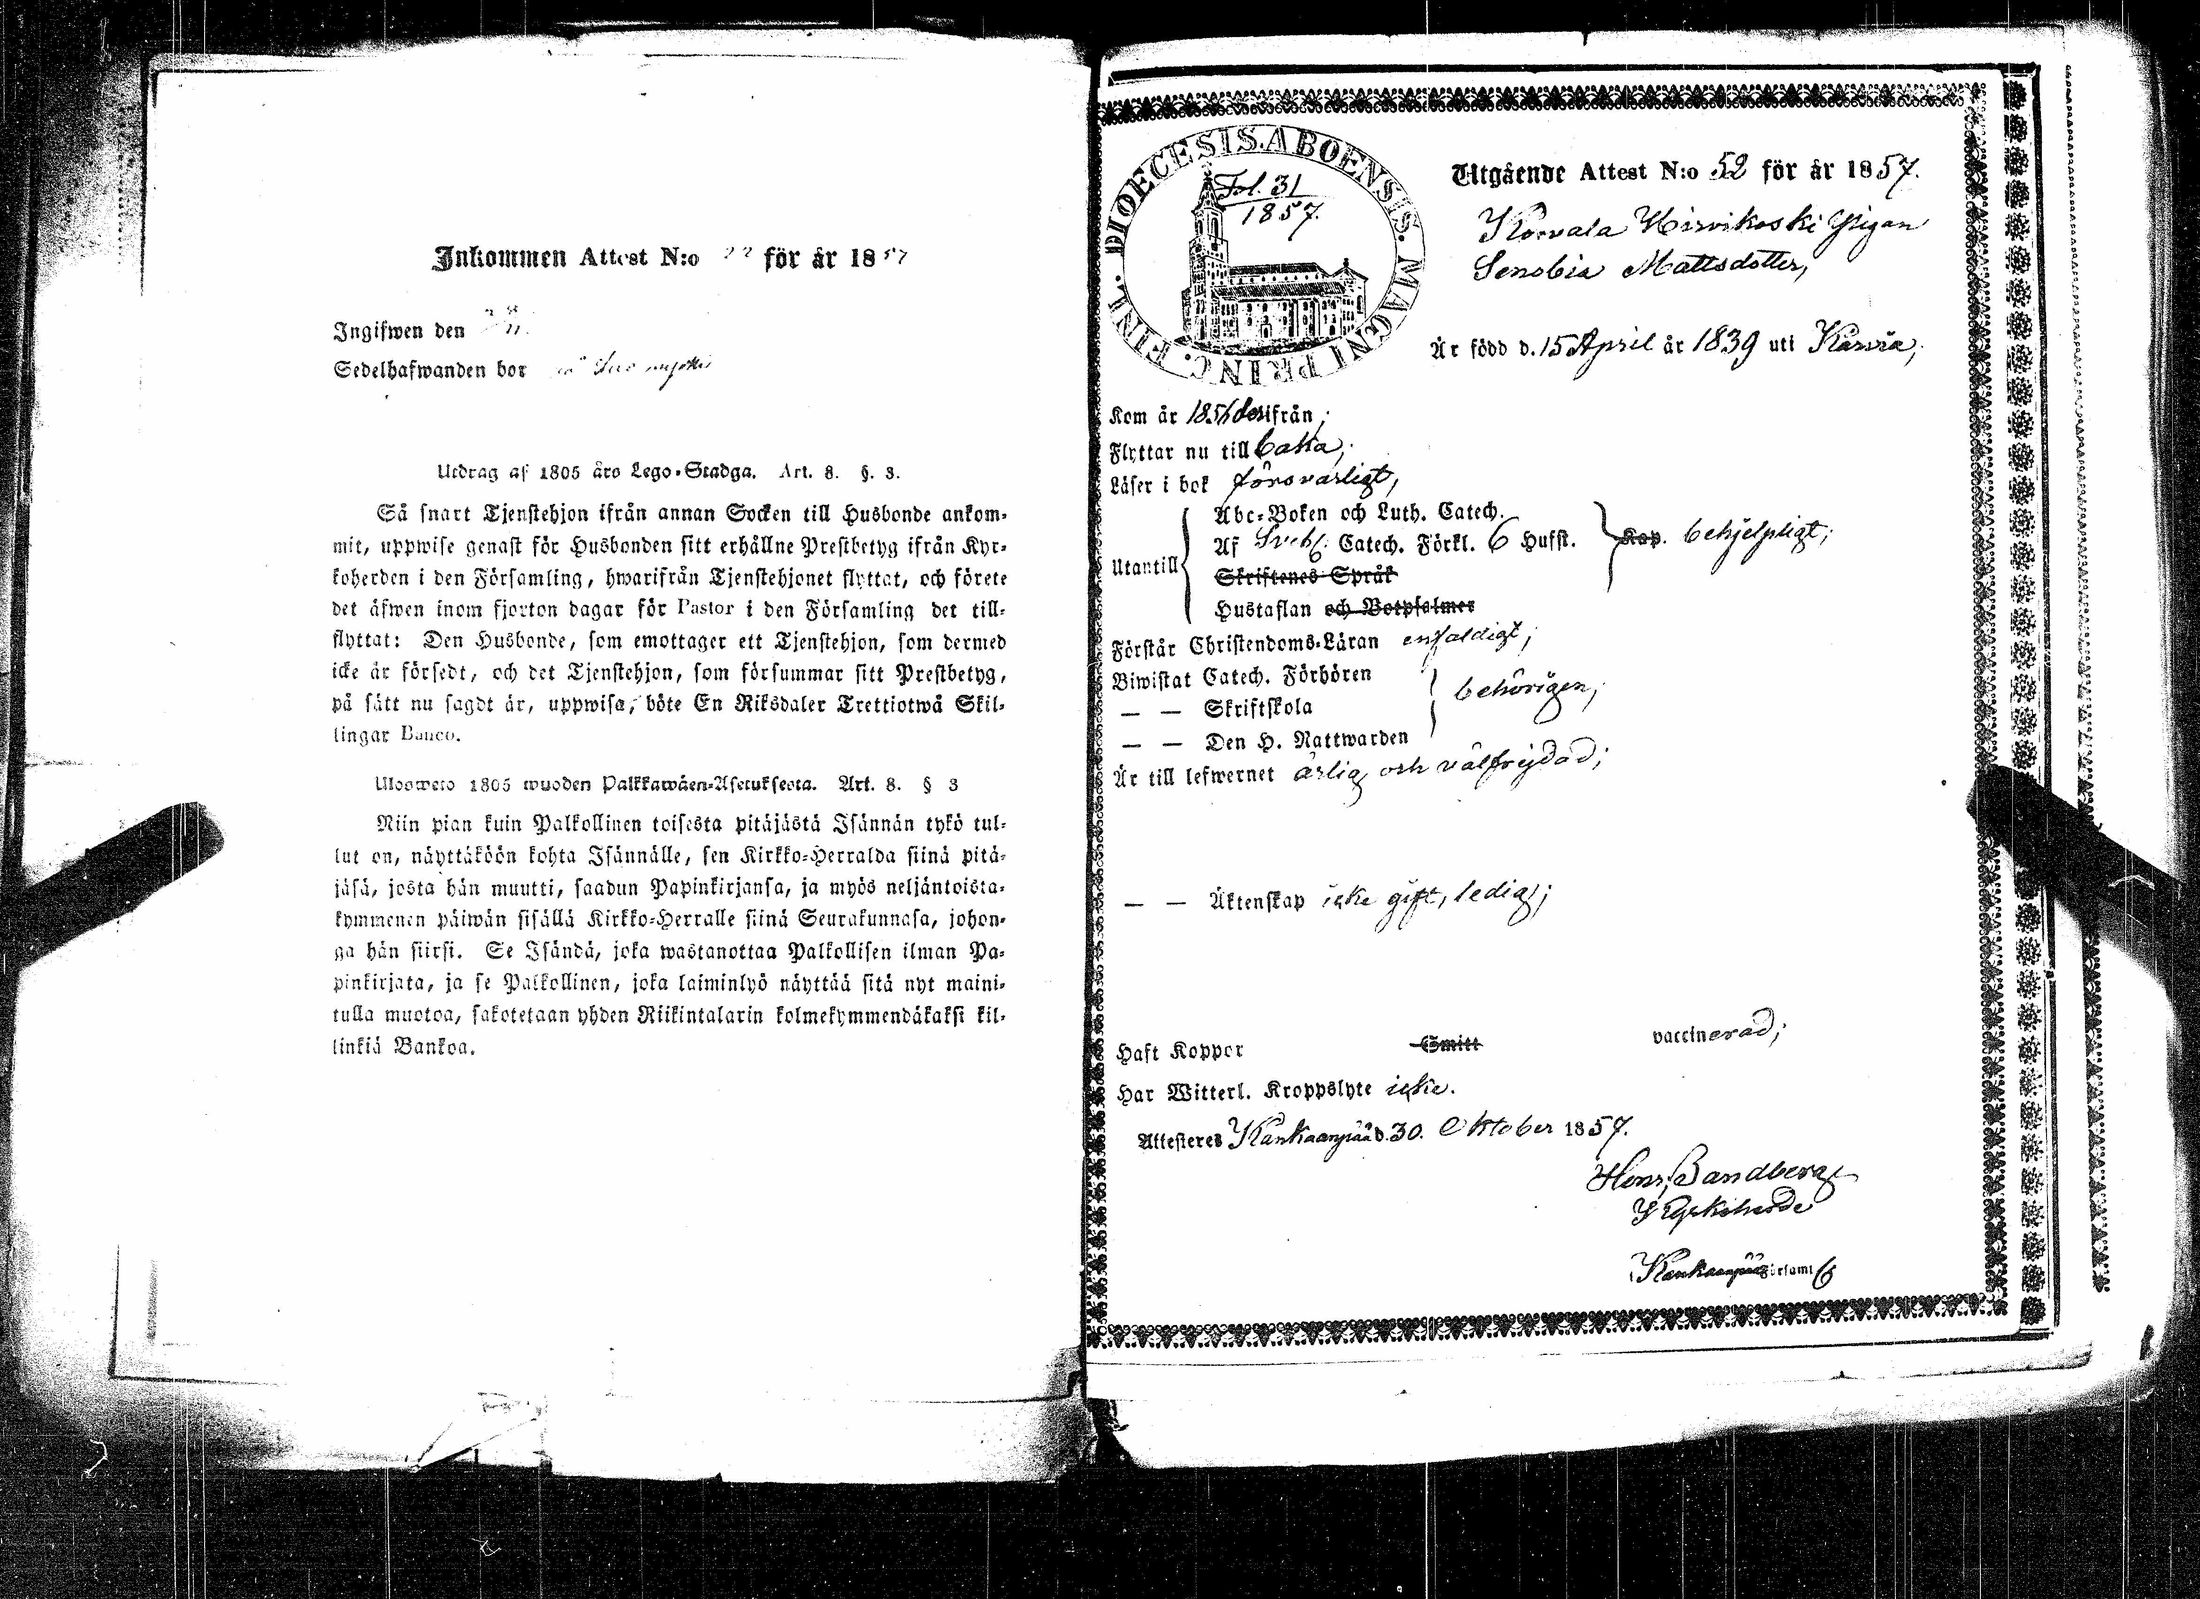 Inkommen Attest N:o 22 för år 1857
Ingifwen den
Sedelhafwanden bor
Utdrag af 1805 års Lego-Stadga. Art. 8. §. 3.
Så snart Tjenstehjon ifrån annan Socken till Husbonde ankom-
mit, uppwise genast för Husbonden sitt erhållne Prestbetyg ifrån Kyr-
koherden i den Församling, hwarifrån Tjenstehjonet flyttat, och förete
det äfwen inom fjorton dagar för Pastor i den Församling det till-
flyttat: Den Husbonde, som emottager ett Tjenstehjon, som dermed
icke är försedt, och det Tjenstehjon, som försummar sitt Prestbetyg,
på sätt nu sagdt är, uppwisa, böte En Riksdaler Trettiotwå Skil-
lingar Banco.
Uloosweto 1805 wuoden Palkkawäen-Asetuksesta. Art. 8. § 3
Niin pian kuin Palkollinen toisesta pitäjästä Isännän tykö tul-
lut on, näyttäköön kohta Isännälle, sen Kirkko-Herralda siinä pitä-
jäsä, josta hän muutti, saadun Papinkirjansa, ja myös neljäntoista-
kymmenen päiwän sisällä Kirkko-Herralle siinä Seurakunnasa, johon-
ga hän siirsi. Se Isändä, joka wastanottaa Palkollisen ilman Pa-
pinkirjata, ja se Palkollinen, joka laiminlyö näyttää sitä nyt maini-
tulla muotoa, sakotetaan yhden Riikintalarin kolmekymmendäkaksi kil-
linkiä Bankoa.
DIOECESIS. ABOENSIS. MAGNI PRINC. FINL.
Fol. 31
1857.
Utgående Attest N:o 52 för år 1857.
Korvala Hirvikoski Pigan
Senobia Mattsdotter,
Är född d. 15 April år 1839 uti Karvia,
Kom år 1856 derifrån;
Flyttar nu till baka;
Läser i bok försvarligt,
Utantill
Abc-Boken och Luth. Catech.
Af Sveb. Catech. Förkl. 6 Hufst. Kap. behjelpligt;
Skriftenes Språk
Hustaflan och Botpsalmer
Förstår Christendoms-Läran enfaldigt;
Biwistat Catech. Förhören
— — Skriftskola behörigen;
— — Den H. Nattwarden
Är till lefwernet ärlig och välfrejdad;
— — Äktenskap icke gift, ledig;
Haft Koppor Smitt vaccinerad;
Har Witterl. Kroppslyte icke.
Attesteres Kankaanpää d. 30. Oktober 1857.
Henr. Sandberg
Kyrkoherde
i Kankaanpää Församl